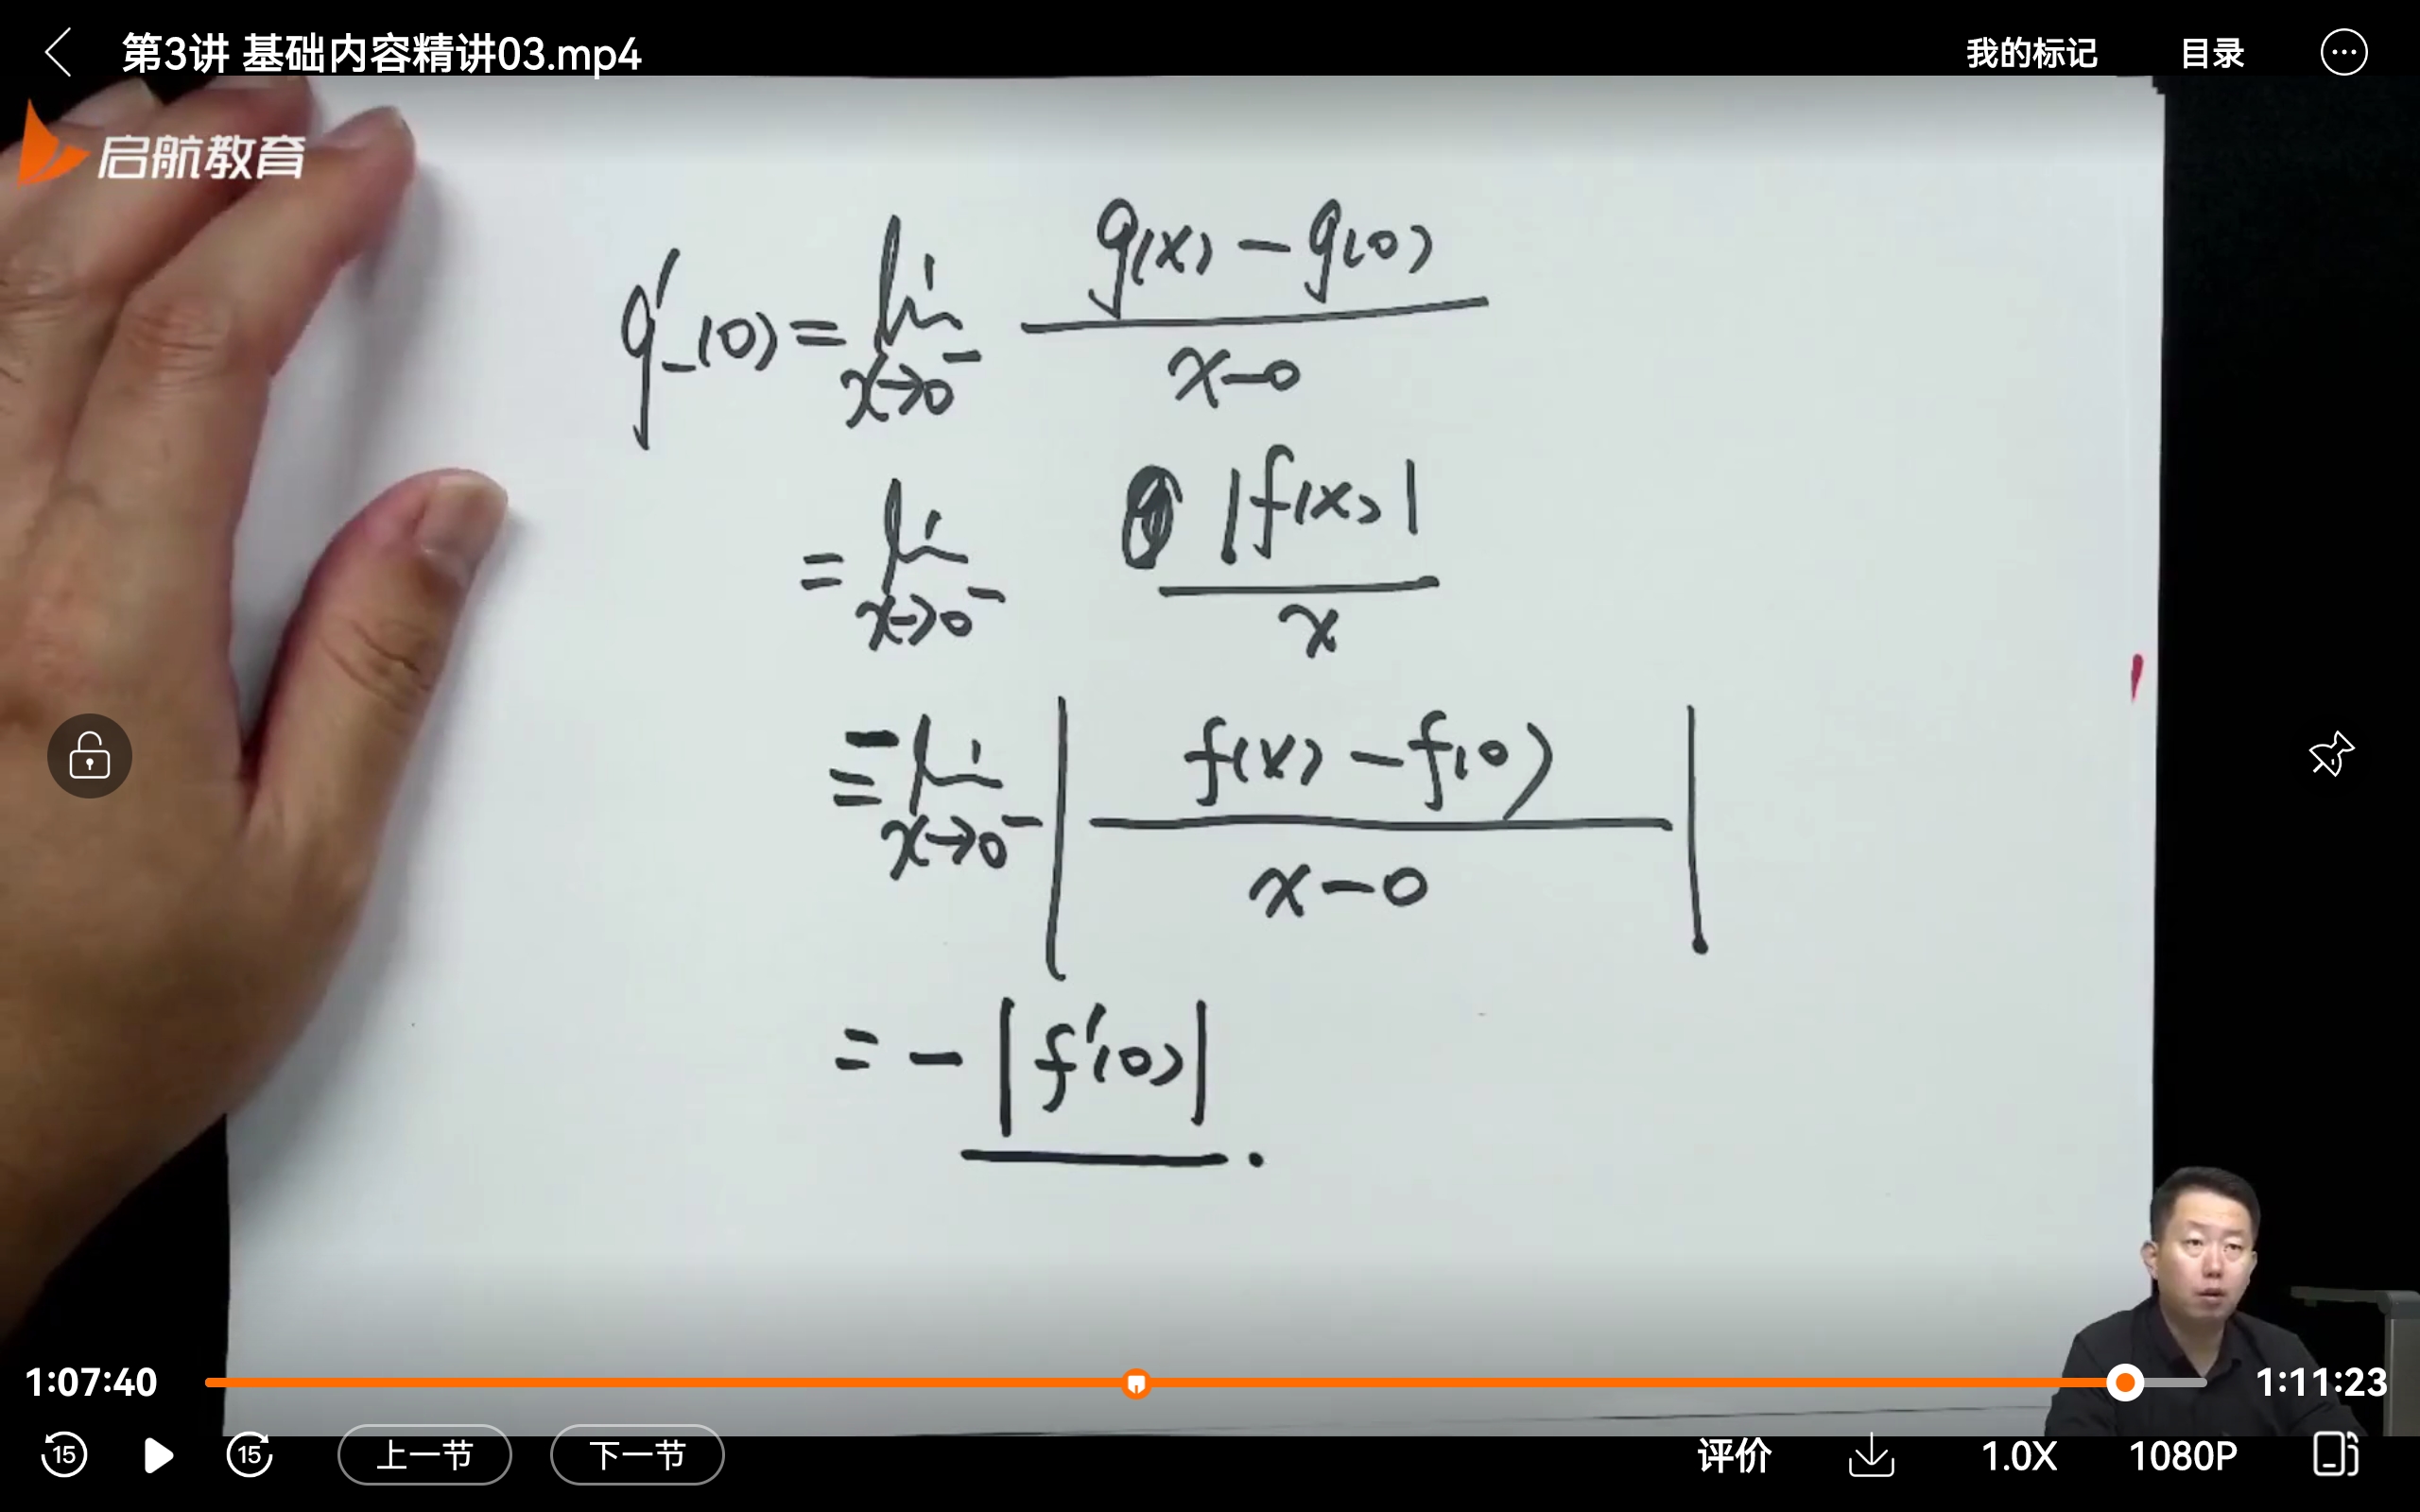 第3讲 基础内容精讲03.mp4
我的标记
目录
启航教育
g'₋(0) = lim x→0⁻ (g(x) − g(0)) / (x−0)
= lim x→0⁻ |f(x)| / x
= −lim x→0⁻ | (f(x) − f(0)) / (x−0) |
= −|f'(0)|.
1:07:40
1:11:23
15
15
上一节
下一节
评价
1.0X
1080P